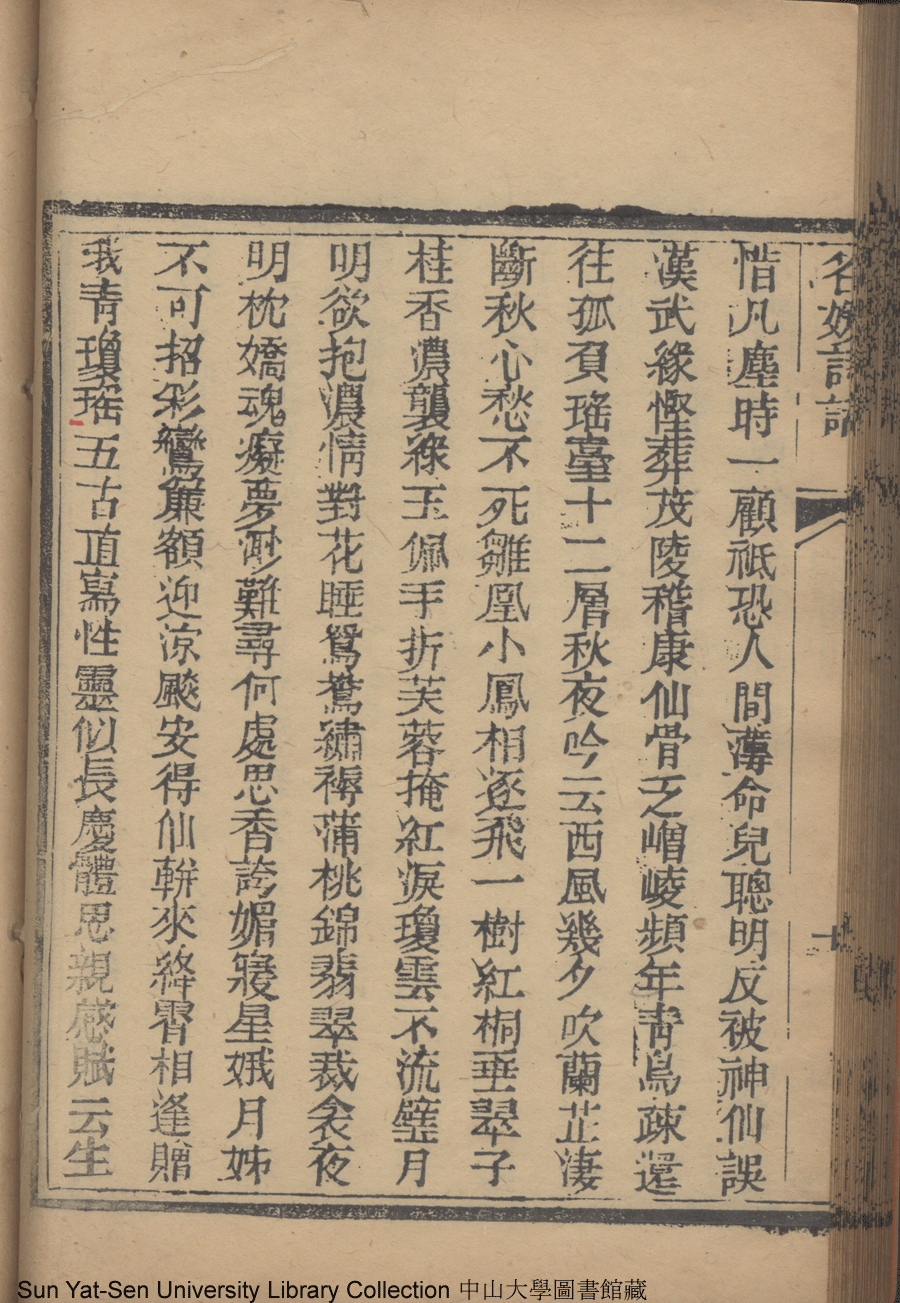 名媛詩話
十
惜凡塵時一顧祗恐人間薄命兒聰明反被神仙誤
漢武緣慳葬茂陵稽康仙骨乏崷崚頻年青鳥疎還
往孤負瑤臺十二層秋夜吟云西風幾夕吹蘭芷淒
斷秋心愁不死雛凰小鳳相逐飛一樹紅桐垂翠子
桂香濃襲綠玉佩手折芙蓉掩紅淚瓊雲不流璧月
明欲抱濃情對花睡鴛鴦繡褥蒲桃錦翡翠裁衾夜
明枕嬌魂癡夢渺難尋何處思香誇媚寢星娥月姊
不可招彩鸞簾額迎涼颸安得仙輧來絳霄相逢贈
我靑瓊瑤五古直寫性靈似長慶體思親感賦云生
Sun Yat-Sen University Library Collection 中山大學圖書館藏